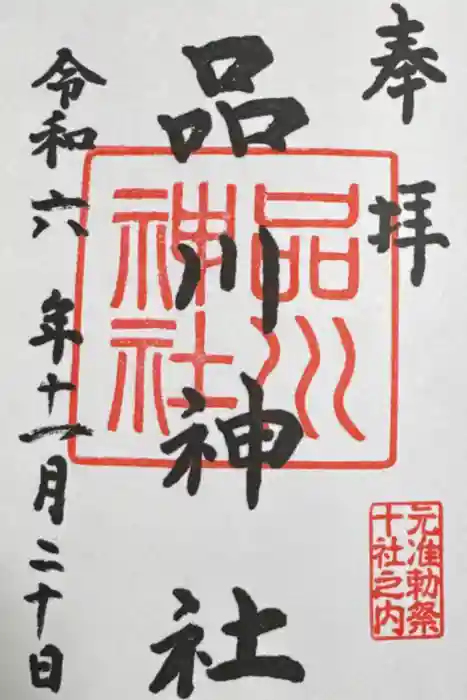 奉拝
品川神社
品川神社
元准勅祭
十社之内
令和六年十一月二十日